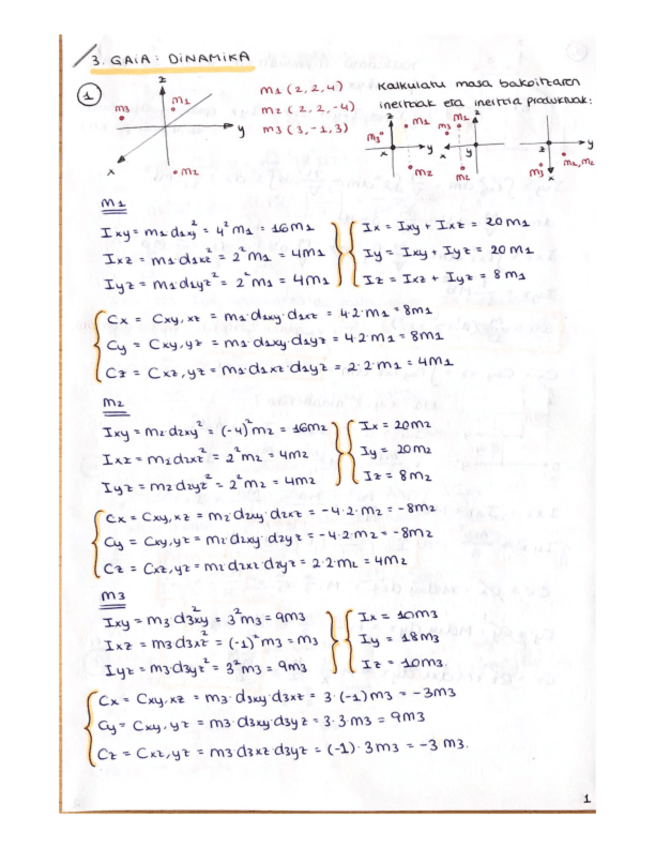 3. GAIA: DINAMIKA
1
z
m3
m1
y
x
m2
m1 (2, 2, 4)
m2 (2, 2, -4)
m3 (3, -1, 3)
Kalkulatu masa bakoitzaren
inertziak eta inertzia produktuak:
z
m1
m3
y
x
m2
z
m1
m3
y
m2
z
y
m3
x
m1, m2
m1
Ixy = m1·d1xy² = 4²m1 = 16m1
Ixz = m1·d1xz² = 2²m1 = 4m1
Iyz = m1·d1yz² = 2²m1 = 4m1
Ix = Ixy + Ixz = 20m1
Iy = Ixy + Iyz = 20m1
Iz = Ixz + Iyz = 8m1
Cx = Cxy,xz = m1·d1xy·d1xz = 4·2·m1 = 8m1
Cy = Cxy,yz = m1·d1xy·d1yz = 4·2·m1 = 8m1
Cz = Cxz,yz = m1·d1xz·d1yz = 2·2·m1 = 4m1
m2
Ixy = m2·d2xy² = (-4)²m2 = 16m2
Ixz = m2d2xz² = 2²m2 = 4m2
Iyz = m2d2yz² = 2²m2 = 4m2
Ix = 20m2
Iy = 20m2
Iz = 8m2
Cx = Cxy,xz = m2·d2xy·d2xz = -4·2·m2 = -8m2
Cy = Cxy,yz = m2·d2xy·d2yz = -4·2·m2 = -8m2
Cz = Cxz,yz = m2·d2xz·d2yz = 2·2·m2 = 4m2
m3
Ixy = m3·d3xy² = 3²m3 = 9m3
Ixz = m3·d3xz² = (-1)²m3 = m3
Iyz = m3·d3yz² = 3²m3 = 9m3
Ix = 10m3
Iy = 18m3
Iz = 10m3.
Cx = Cxy,xz = m3·d3xy·d3xz = 3·(-1)m3 = -3m3
Cy = Cxy,yz = m3·d3xy·d3yz = 3·3·m3 = 9m3
Cz = Cxz,yz = m3·d3xz·d3yz = (-1)·3m3 = -3m3.
1